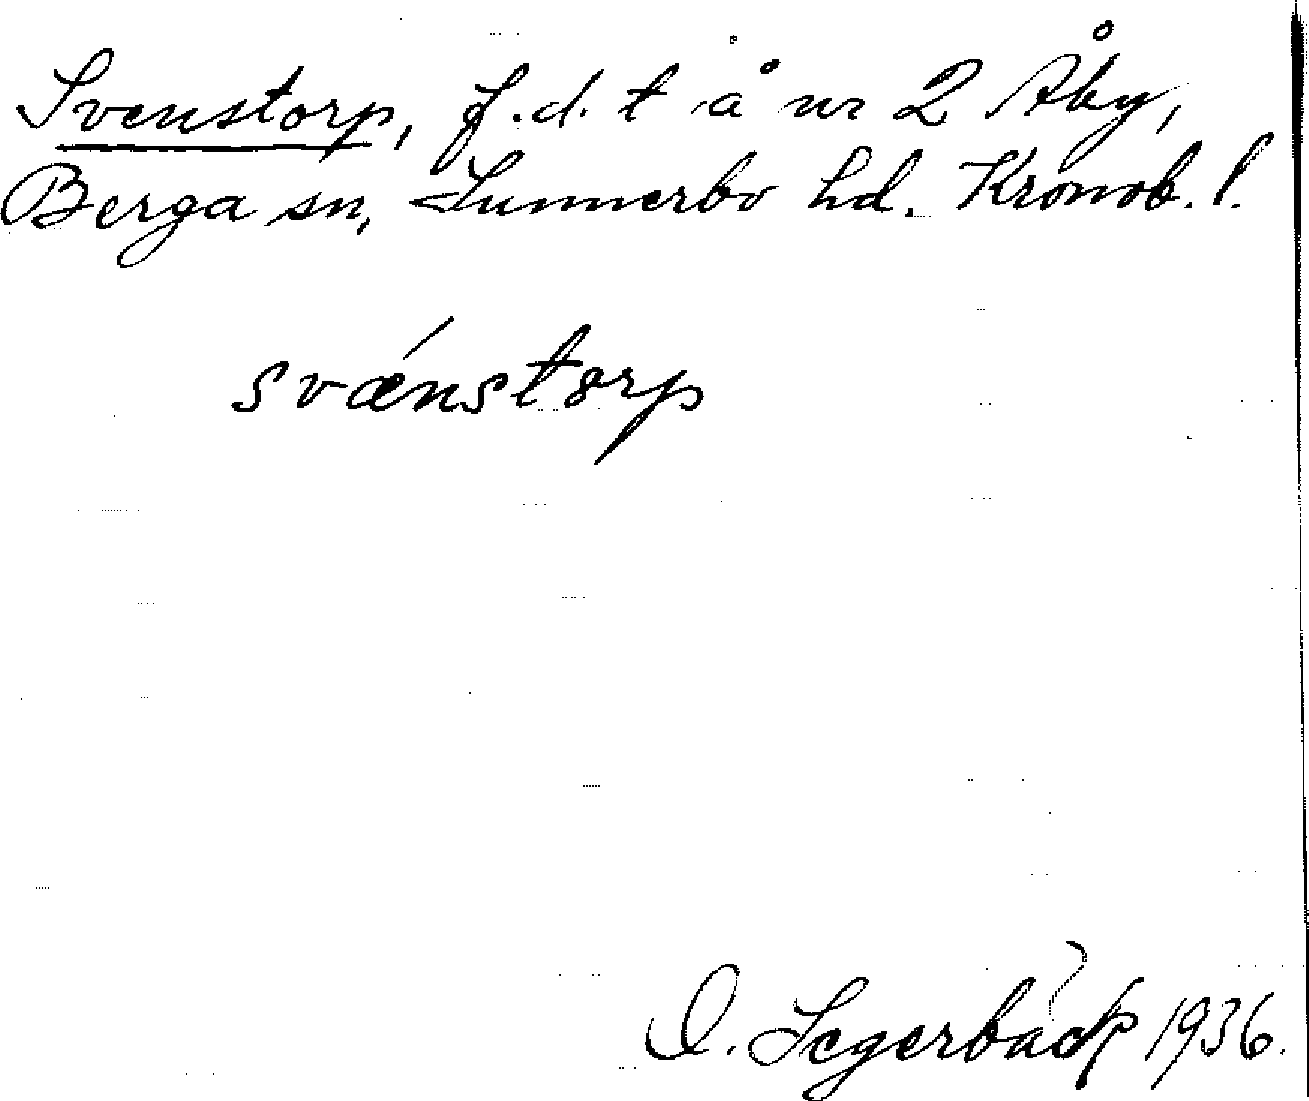 Svenstorp, f.d. t å nr 2 Åby,
Berga sn, Sunnerbo hd. Kronob. l.
svǽnstorp
O. Segerbäck 1936.